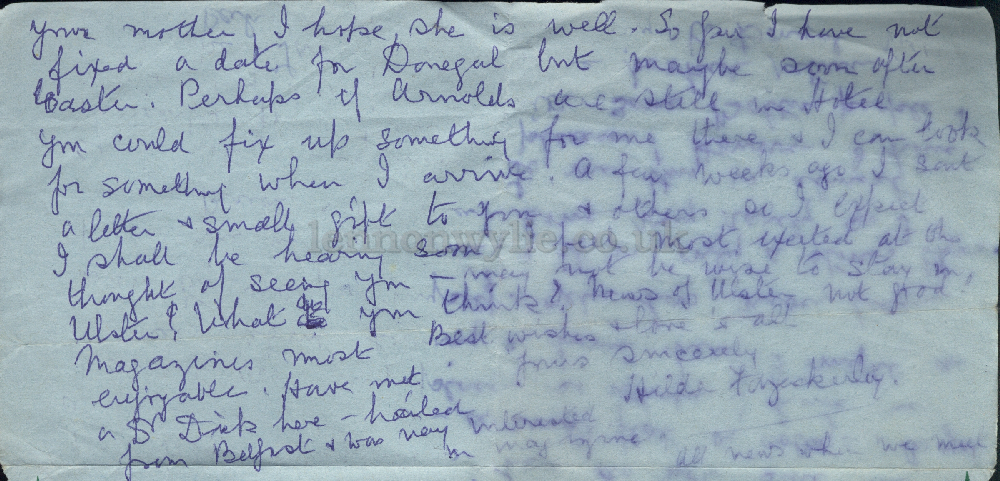 your mother, I hope she is well. So far I have not
fixed a date for Donegal but maybe soon after
Easter. Perhaps if Arnolds are still in Hotel
you could fix up something for me there & I can look
for something when I arrive. A few weeks ago I sent
a letter & small gift to you & others so I expect
I shall be hearing soon I am most excited at the
thought of seeing you – may not be wise to stay in
Ulster! What do you think? News of Ulster not good!
Best wishes & love to all
Magazines most
enjoyable. Have met
yours sincerely
Hilda
a Dr Dick here – hailed
from Belfast & was very interested
in magazine.
all news when we meet
lennonwylie.co.uk